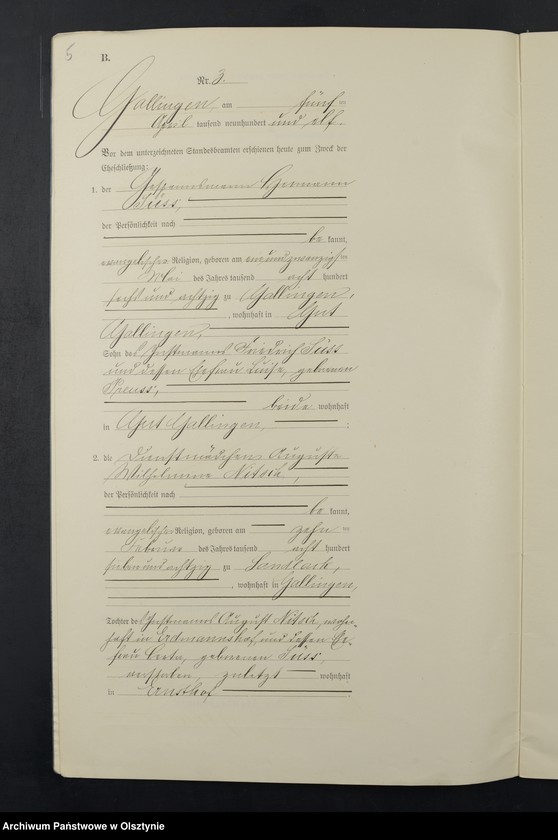 5
B.
Nr. 3.
Gallingen, am fünf-
April tausend neunhundert und elf.
Vor dem unterzeichneten Standesbeamten erschienen heute zum Zweck der
Eheschließung:
1. der Gespannknecht Hermann
Süss,
der Persönlichkeit nach
be kannt,
evangelischer Religion, geboren am einundzwanzigsten
Mai des Jahres tausend acht hundert
sechs und achtzig zu Gallingen,
, wohnhaft in Gut
Gallingen,
Sohn des Instmanns Friedrich Süss
und dessen Ehefrau Luise, geborenen
Preuss,
beide wohnhaft
in Gut Gallingen, ;
2. die Dienstmädchen Auguste
Wilhelmine Nitsch,
der Persönlichkeit nach
be kannt,
evangelischer Religion, geboren am zehn-
Februar des Jahres tausend acht hundert
sieben und achtzig zu Sandlack,
, wohnhaft in Gallingen,
Tochter des Instmanns August Nitsch, wohn-
haft in Erdmannshof, und dessen Ehe-
frau Berta, geborenen Süss,
verstorben, zuletzt wohnhaft
in Ernsthof
Archiwum Państwowe w Olsztynie